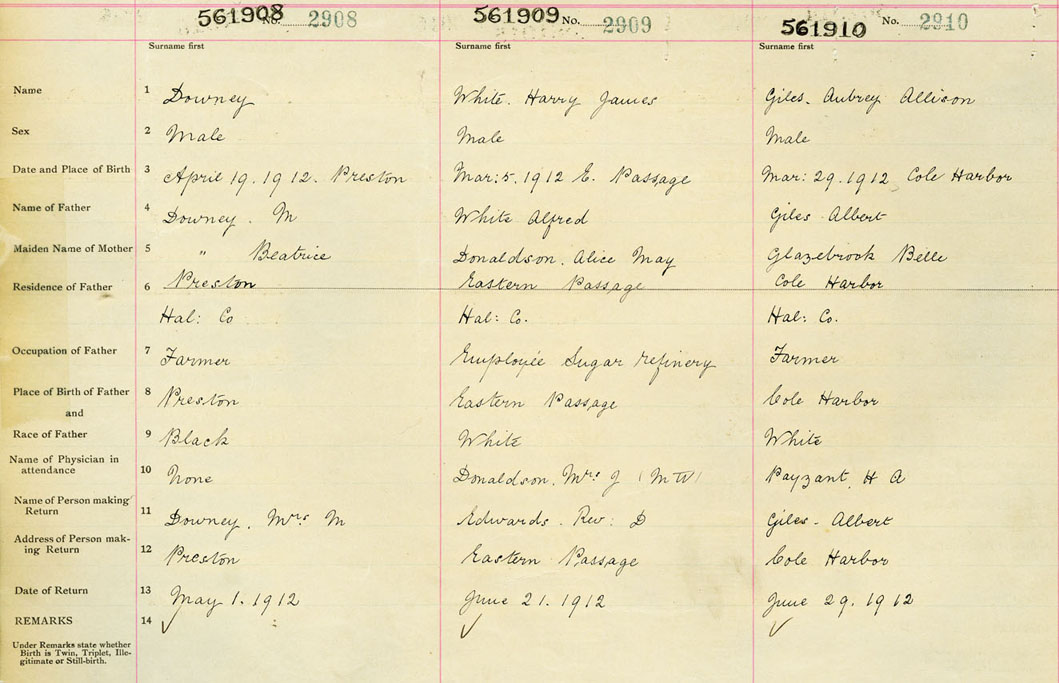 561908 No. 2908 561909 No. 2909 561910 No. 2910
Surname first Surname first Surname first
Name 1 Downey White. Harry James Giles. Aubrey Allison
Sex 2 Male Male Male
Date and Place of Birth 3 April 19. 1912. Preston Mar: 5. 1912 E. Passage Mar: 29. 1912 Cole Harbor
Name of Father 4 Downey. M White Alfred Giles Albert
Maiden Name of Mother 5 " Beatrice Donaldson. Alice May Glazebrook Belle
Residence of Father 6 Preston Eastern Passage Cole Harbor
Hal: Co Hal: Co. Hal: Co.
Occupation of Father 7 Farmer Employée Sugar refinery Farmer
Place of Birth of Father 8 Preston Eastern Passage Cole Harbor
and
Race of Father 9 Black White White
Name of Physician in
attendance 10 None Donaldson, Mrs J (M W) Payzant, H A
Name of Person making
Return 11 Downey, Mrs M Edwards. Rev: D Giles - Albert
Address of Person mak-
ing Return 12 Preston Eastern Passage Cole Harbor
Date of Return 13 May 1. 1912 June 21. 1912 June 29. 1912
REMARKS 14
Under Remarks state whether
Birth is Twin, Triplet, Ille-
gitimate or Still-birth.